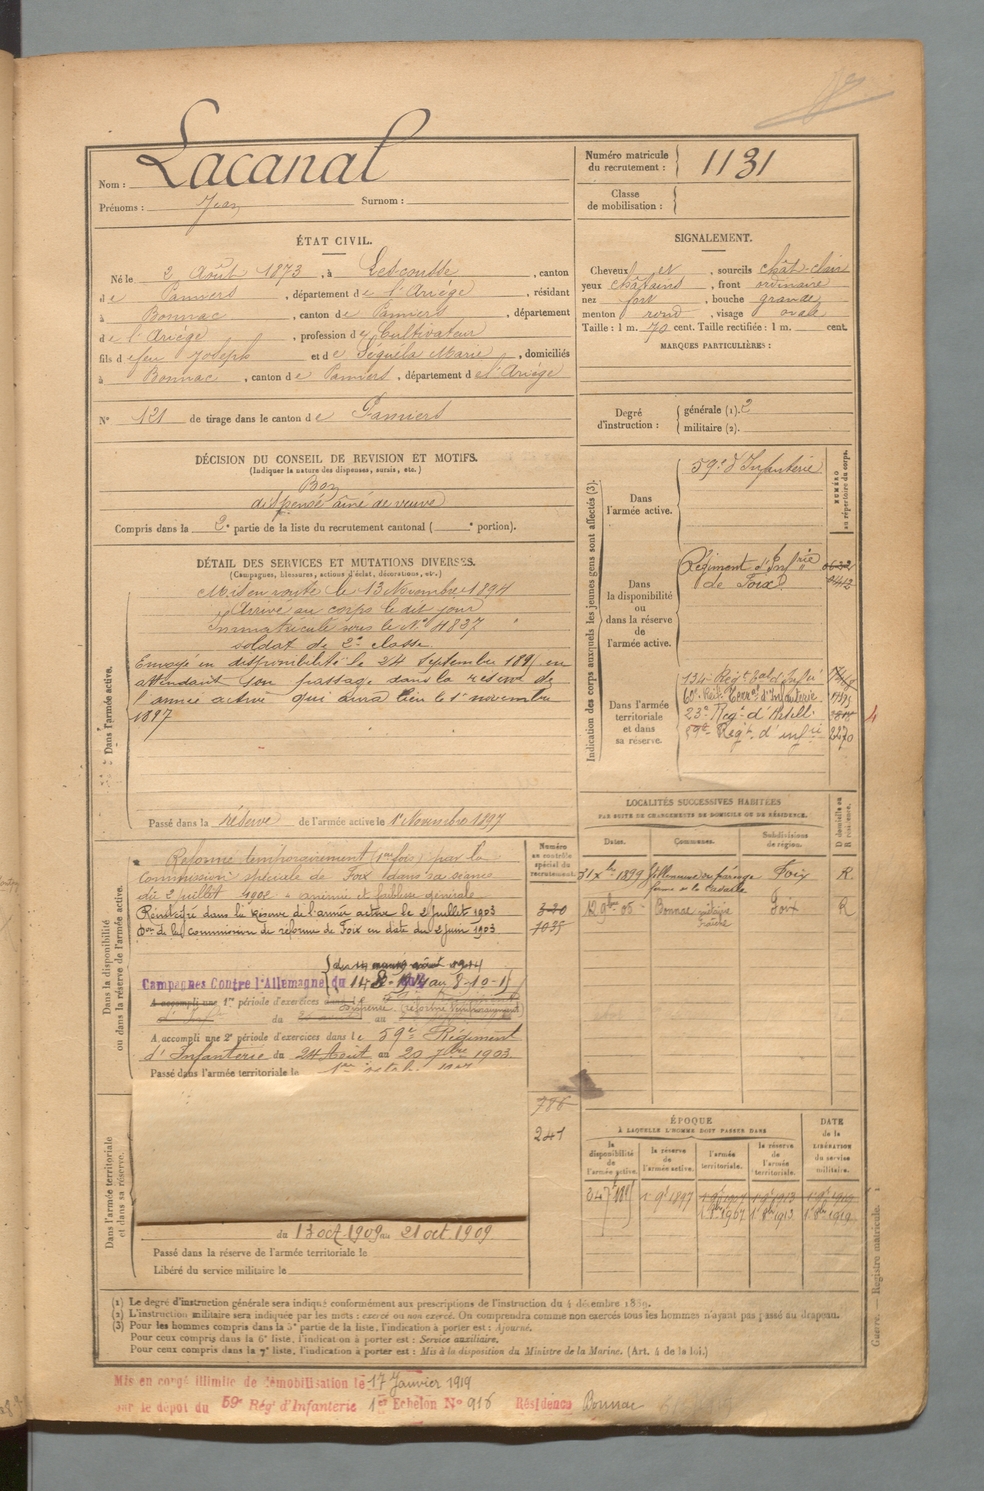 Nom : Lacanal
Prénoms : Jean Surnom :
Numéro matricule du recrutement : 1131
Classe de mobilisation :
ÉTAT CIVIL.
Né le 2 Août 1873, à Lescousse, canton
de Pamiers, département de l'Ariége, résidant
à Bonnac, canton de Pamiers, département
de l'Ariége, profession de Cultivateur
fils de feu Joseph et de Séguéla Marie, domiciliés
à Bonnac, canton de Pamiers, département de l'Ariége
N° 121 de tirage dans le canton de Pamiers
SIGNALEMENT.
Cheveux et, sourcils chât-clair
yeux châtains, front ordinaire
nez fort, bouche grande
menton rond, visage ovale
Taille : 1 m. 70 cent. Taille rectifiée : 1 m. cent.
MARQUES PARTICULIÈRES :
Degré d'instruction : générale (1). 2
militaire (2).
DÉCISION DU CONSEIL DE REVISION ET MOTIFS.
(Indiquer la nature des dispenses, sursis, etc.)
Bon
dispensé aîné de veuve
Compris dans la 2e partie de la liste du recrutement cantonal ( e portion).
DÉTAIL DES SERVICES ET MUTATIONS DIVERSES.
(Campagnes, blessures, actions d'éclat, décorations, etc.)
Dans l'armée active.
Mis en route le 13 Novembre 1894
Arrivé au corps le dit jour
Immatriculé sous le N° 4837
soldat de 2e classe
Envoyé en disponibilité le 24 Septembre 1895 en
attendant son passage dans la réserve de
l'armée active qui aura lieu le 1er novembre
1897
Passé dans la réserve de l'armée active le 1er Novembre 1897
Indication des corps auxquels les jeunes gens sont affectés (3).
NUMÉRO au répertoire du corps.
Dans l'armée active.
59e d'Infanterie
Dans la disponibilité ou dans la réserve de l'armée active.
Régiment d'Infrie
de Foix
Dans l'armée territoriale et dans sa réserve.
134e Régt Tal d'Infie
23e Régt d'Artell.
59e Régt d'infie 2270
4
LOCALITÉS SUCCESSIVES HABITÉES
PAR SUITE DE CHANGEMENTS DE DOMICILE OU DE RÉSIDENCE.
Dates. Communes. Subdivisions de région. D domicile ou R résidence.
1899 Foix R
05 Bonnac Foix R
Dans la disponibilité ou dans la réserve de l'armée active.
Numéro au contrôle spécial du recrutement.
Réformé temporairement (1re fois) par la
Commission spéciale de Foix dans sa séance
du 2 juillet 1902 - anémie et faiblesse générale
Réintégré dans la Réserve de l'armée active le 2 juillet 1903
Don de la Commission de réforme de Foix en date du 2 juin 1903
330
7035
Campagnes Contre l'Allemagne du
A accompli une 1re période d'exercices dans l
du au
A accompli une 2e période d'exercices dans le 59e Régiment
d'Infanterie du 24 Août au 20 7bre 1903
Passé dans l'armée territoriale le
Dans l'armée territoriale et dans sa réserve.
786
241
du 13 oct. 1909 au 21 oct. 1909
Passé dans la réserve de l'armée territoriale le
Libéré du service militaire le
ÉPOQUE
À LAQUELLE L'HOMME DOIT PASSER DANS
DATE de la LIBÉRATION du service militaire.
la disponibilité de l'armée active. la réserve de l'armée active. l'armée territoriale. la réserve de l'armée territoriale.
1 9b 1897
(1) Le degré d'instruction générale sera indiqué conformément aux prescriptions de l'instruction du 4 décembre 1889.
(2) L'instruction militaire sera indiquée par les mots : exercé ou non exercé. On comprendra comme non exercés tous les hommes n'ayant pas passé au drapeau.
(3) Pour les hommes compris dans la 5e partie de la liste, l'indication à porter est : Ajourné.
Pour ceux compris dans la 6e liste, l'indication à porter est : Service auxiliaire.
Pour ceux compris dans la 7e liste, l'indication à porter est : Mis à la disposition du Ministre de la Marine. (Art. 4 de la loi.)
Guerre. — Registre matricule. 1
Mis en congé illimité de démobilisation le 17 Janvier 1919
par le dépôt du 59e Rég' d'Infanterie 1er Echelon N° 916 Résidence Bonnac